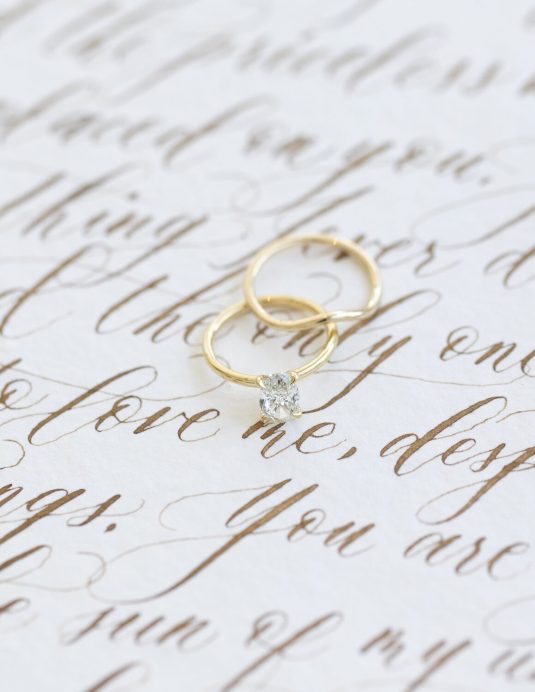 the priceless
placed on you.
thing I ever
the only one
to love me, desp
ngs. You are
e sun of my u